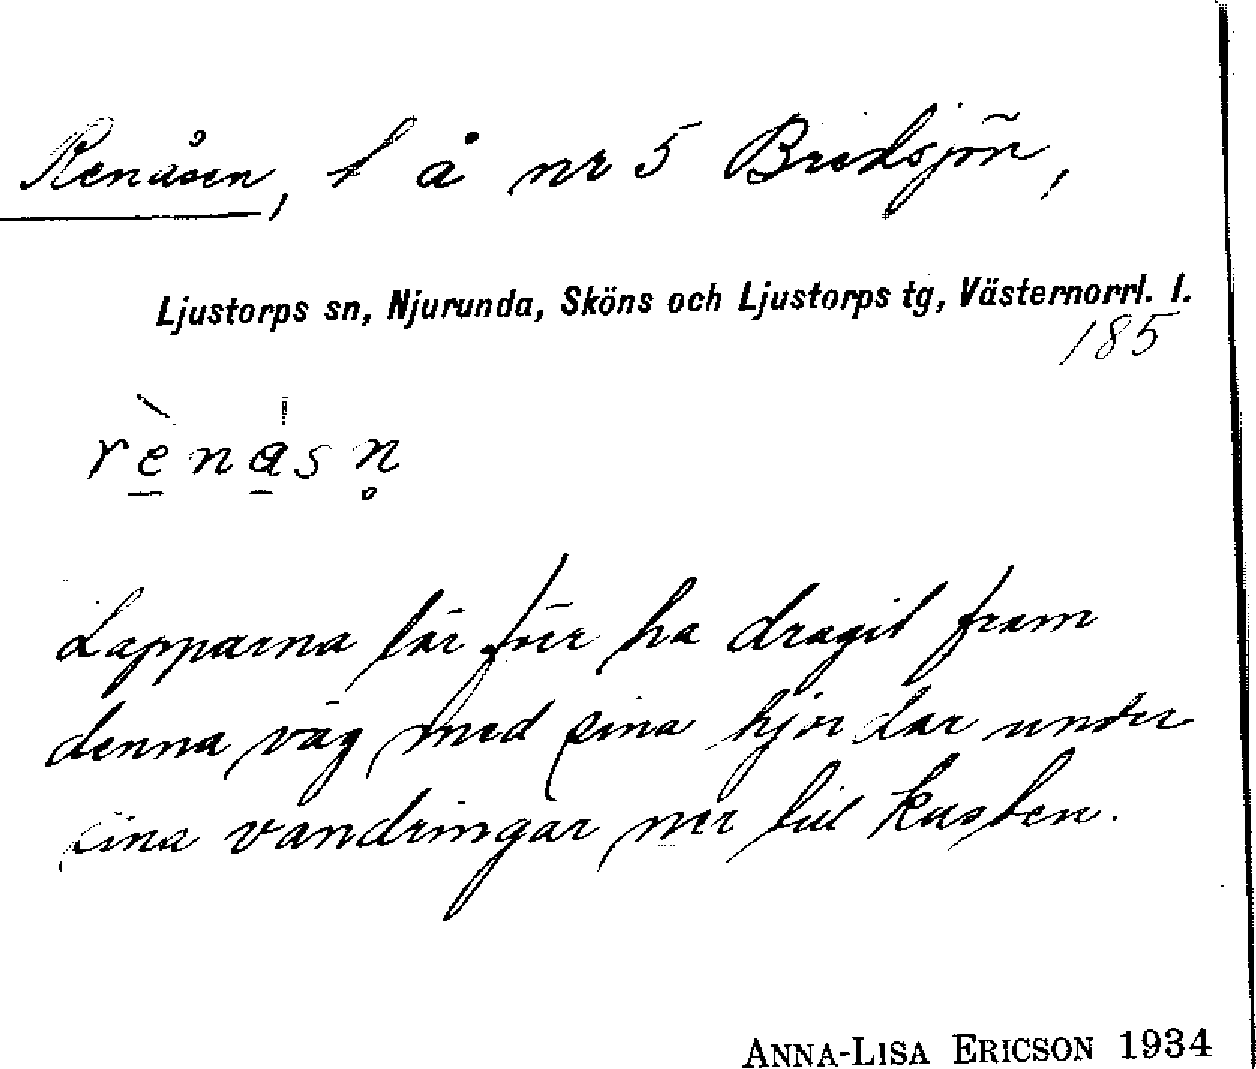 Renåsen, t å nr 5 Bredsjön,
Ljustorps sn, Njurunda, Sköns och Ljustorps tg, Västernorrl. l.
185
rènåsn̥
Lapparna lär förr ha dragit fram
denna väg med sina hjordar under
sina vandringar ner till kusten.
ANNA-LISA ERICSON 1934